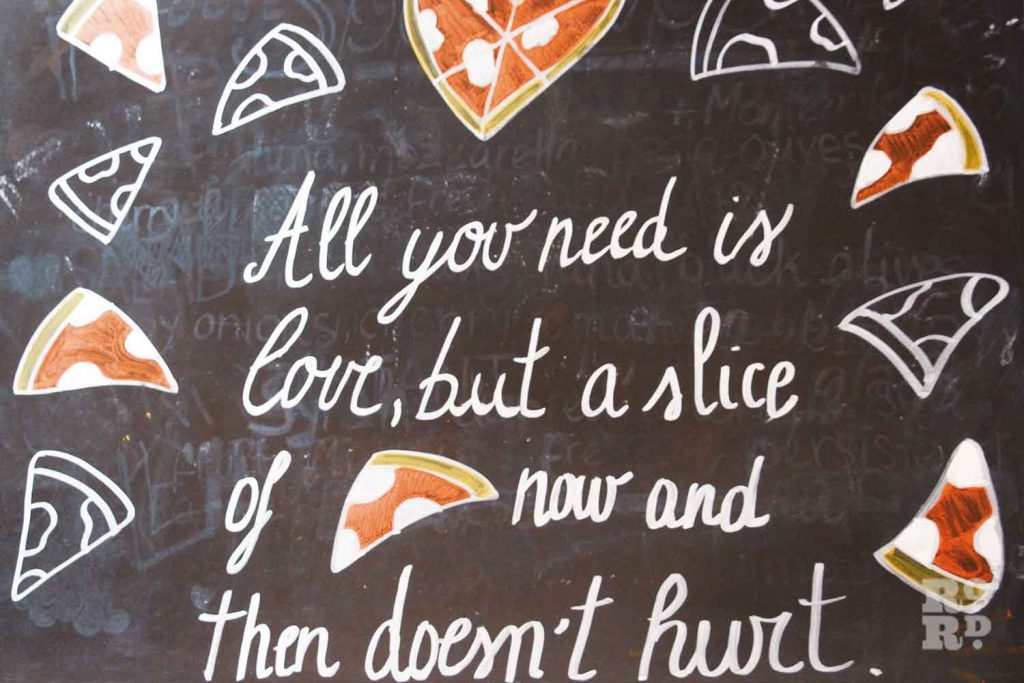 All you need is
love, but a slice
of now and
then doesn't hurt.
RO
RD.